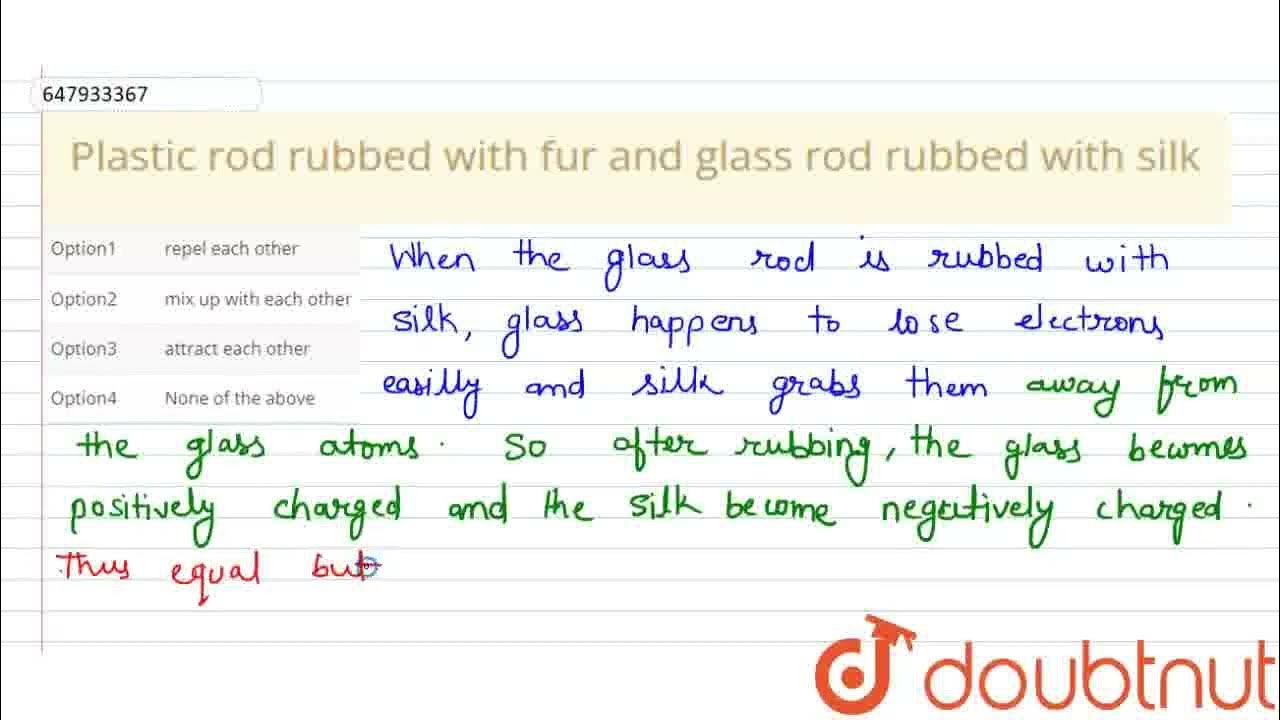 647933367
Plastic rod rubbed with fur and glass rod rubbed with silk
Option1 repel each other
Option2 mix up with each other
Option3 attract each other
Option4 None of the above
When the glass rod is rubbed with
silk, glass happens to lose electrons
easilly and silk grabs them away from
the glass atoms. So after rubbing, the glass becomes
positively charged and the silk become negatively charged.
Thus equal but
doubtnut